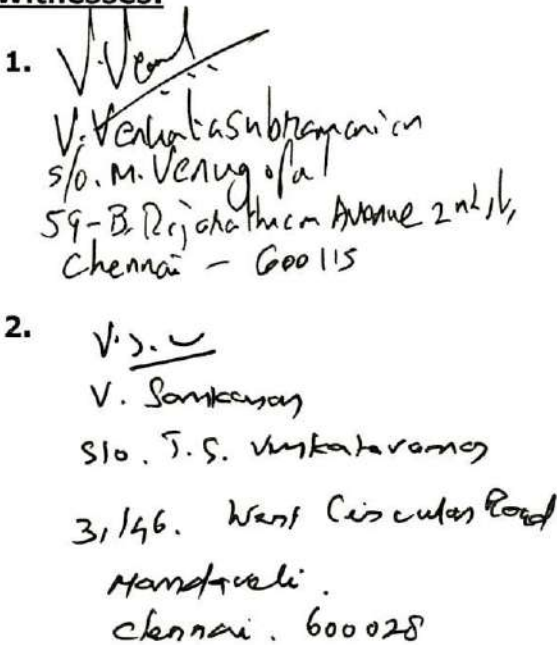 Witnesses:
1.
V. Venkatasubramanian
S/o. M. Venugopal
59-B, Avenue 2nd
Chennai - 600115
2.
V. Sankaran
S/o. T.S. Venkataraman
3/146. West Circular Road
Mandaveli.
Chennai. 600028